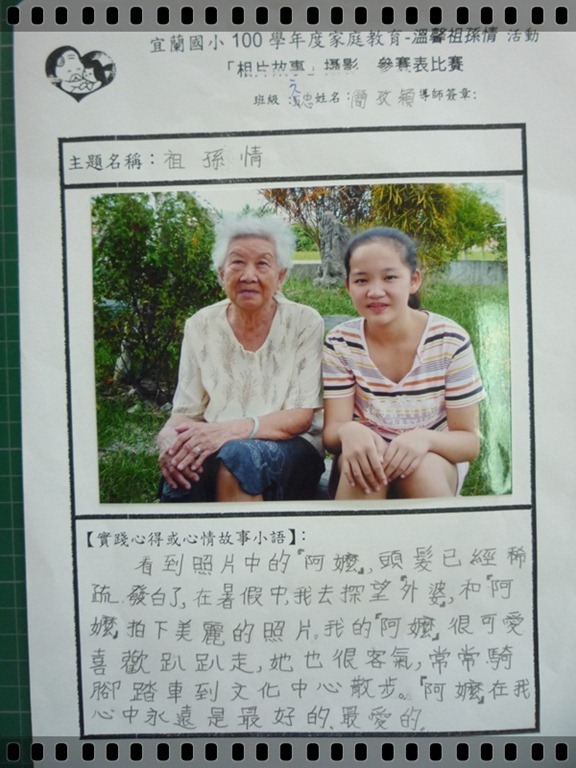 宜蘭國小 100 學年度家庭教育-溫馨祖孫情 活動
「相片故事」攝影 參賽表比賽
班級 忠 姓名：簡孜穎 導師簽章：
主題名稱：祖孫情
【實踐心得或心情故事小語】：
看到照片中的『阿嬤』，頭髮已經稀
疏、發白了，在暑假中，我去探望『外婆』，和『阿
嬤』拍下美麗的照片。我的『阿嬤』很可愛
喜歡趴趴走，她也很客氣，常常騎
腳踏車到文化中心散步。『阿嬤』在我
心中永遠是最好的、最愛的。